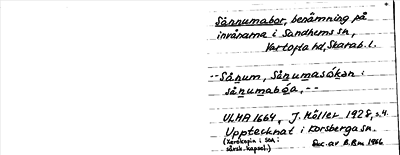 Sånnumabor, benämning på
invånarna i Sandhems sn,
Vartofta hd, Skarab. l.
--Sånum, Sånumasókən i
sånumabǿa, --
ULMA 1664, J. Möller 1928, s.4.
Upptecknat i Korsberga sn.
(Xerokopia i sin:
särsk. kapsel.) Exc. av B.Bm 1966